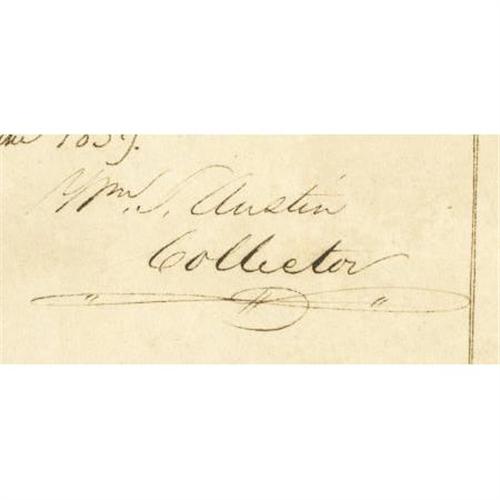 1859.
Wm. S. Austin
Collector